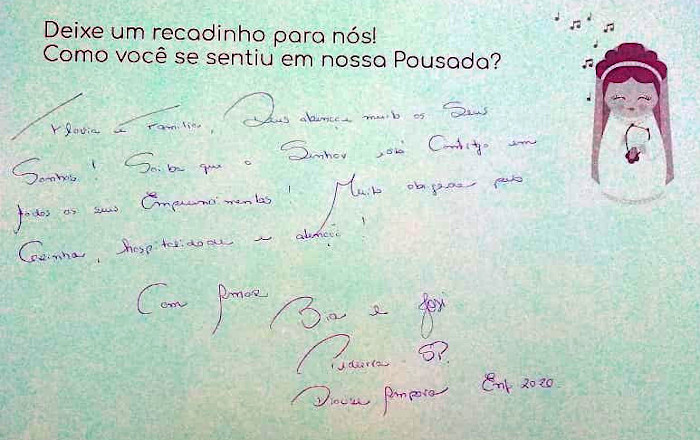 Deixe um recadinho para nós!
Como você se sentiu em nossa Pousada?
Flavia e Familia, Deus abençoe muito os Seus
Sonhos! Saiba que o Senhor está Contigo em
todos os seus Empreendimentos! Muito obrigada pelo
Carinho, hospitalidade e atenção!
Com Amor Bia e
SP.
2020